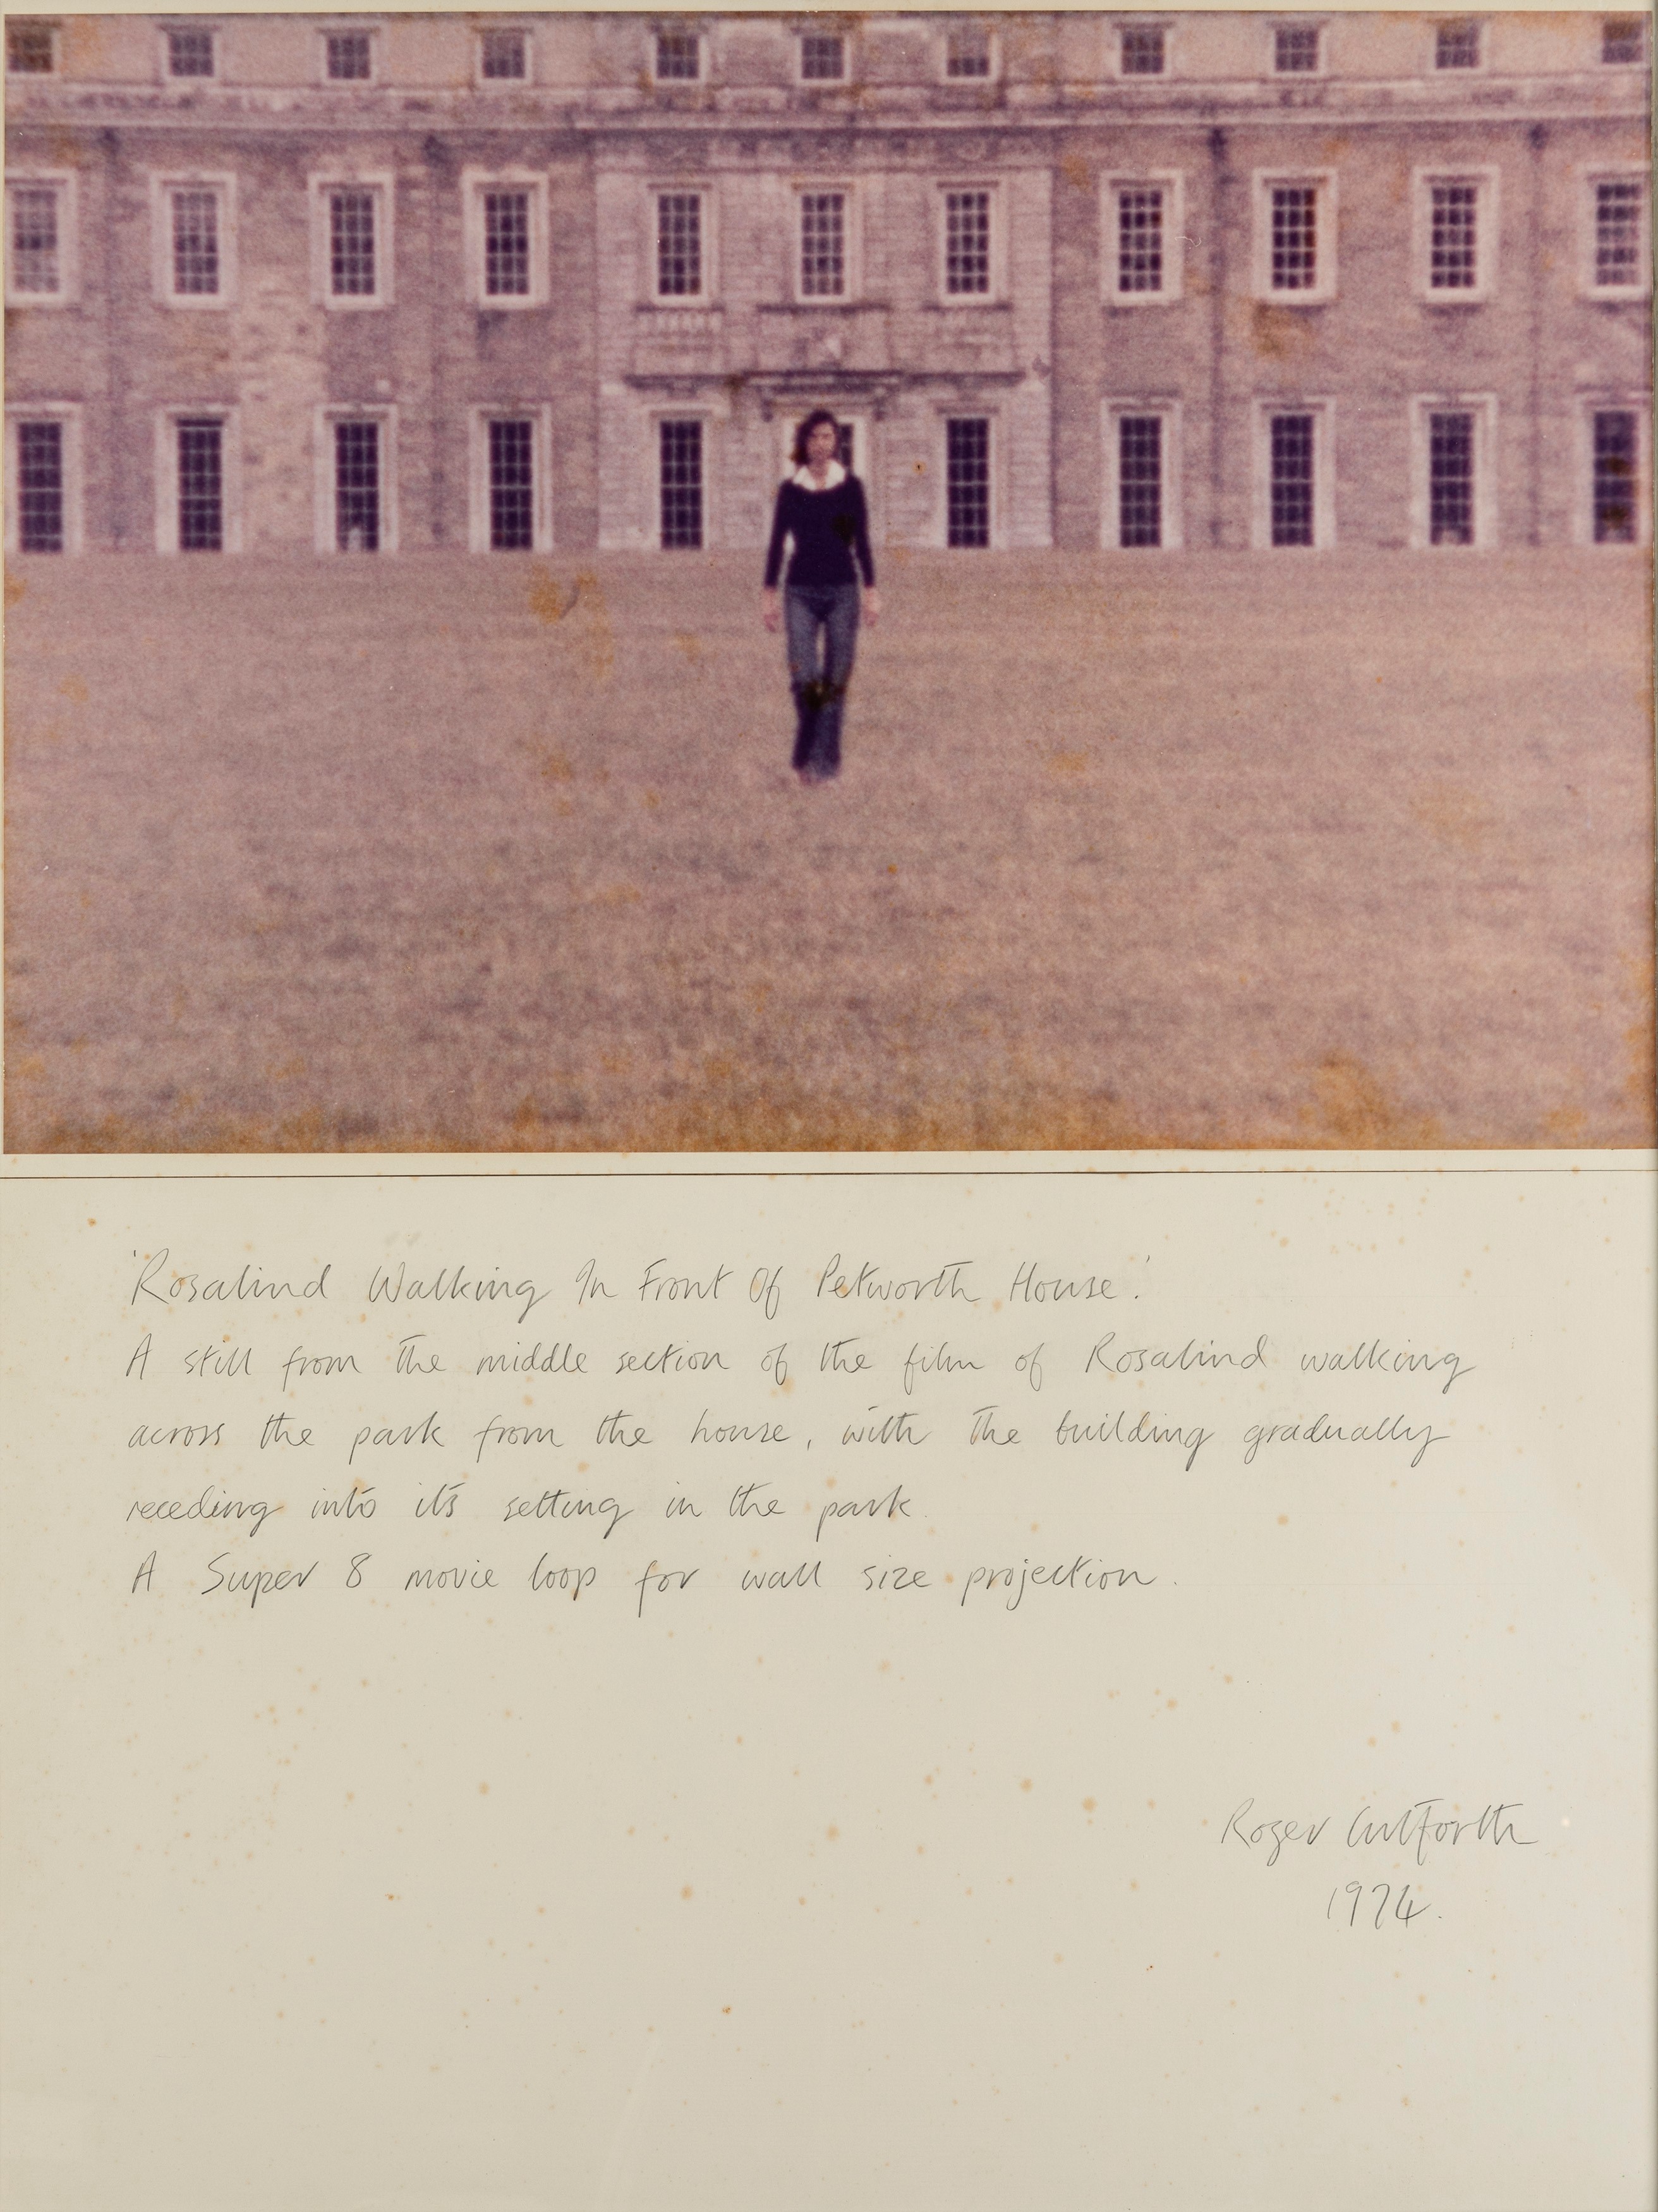 'Rosalind Walking In Front Of Petworth House'.
A still from the middle section of the film of Rosalind walking
across the park from the house, with the building gradually
receding into it's setting in the park.
A Super 8 movie loop for wall size projection.
Roger Cutforth
1974.